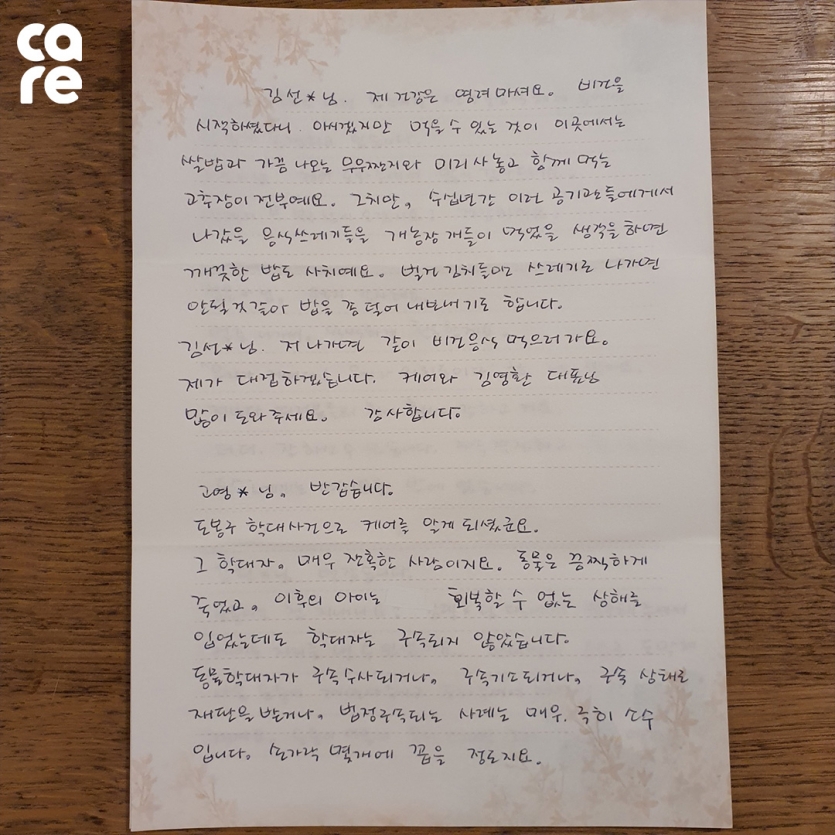 care
김선*님. 제 건강은 염려마셔요. 비건을
시작하셨다니 아시겠지만 먹을 수 있는 것이 이곳에서는
쌀밥과 가끔 나오는 무우짠지와 미리 사놓고 함께 먹는
고추장이 전부예요. 그치만, 수십년간 이런 공기관들에게서
나갔을 음식쓰레기들을 개농장 개들이 먹었을 생각을 하면
깨끗한 밥도 사치예요. 벌건 김치들만 쓰레기로 나가면
안될 것 같아 밥을 좀 덜어 내보내기도 합니다.
김선*님. 저 나가면 같이 비건음식 먹으러 가요.
제가 대접하겠습니다. 케어와 김영환 대표님
많이 도와주세요. 감사합니다.
고영*님. 반갑습니다.
도봉구 학대사건으로 케어를 알게 되셨군요.
그 학대자. 매우 잔혹한 사람이지요. 동물은 끔찍하게
죽었고, 이후의 아이는 회복할 수 없는 상해를
입었는데도 학대자는 구속되지 않았습니다.
동물학대자가 구속수사되거나, 구속기소되거나, 구속 상태로
재판을 받거나, 법정구속되는 사례는 매우, 극히 소수
입니다. 손가락 몇개에 꼽을 정도지요.